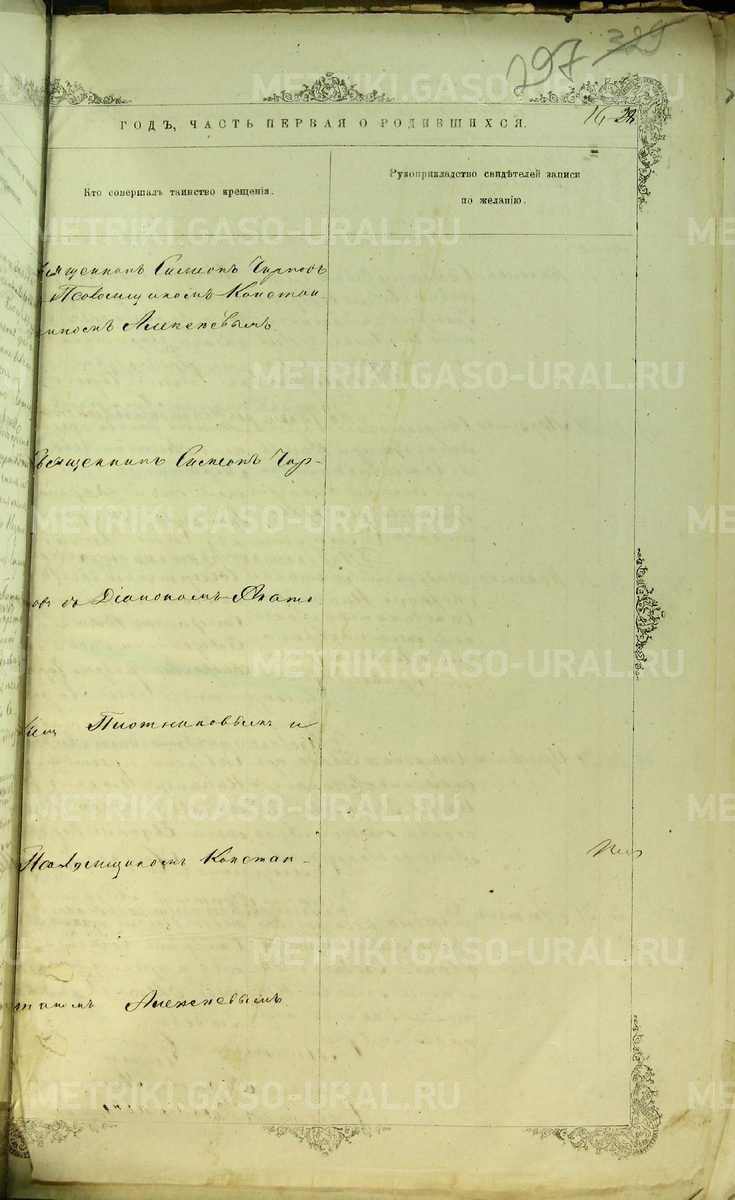 297 329
ГОДЪ, ЧАСТЬ ПЕРВАЯ О РОДИВШИХСЯ.
16-22
Кто совершалъ таинство крещенія.
Рукоприкладство свидѣтелей записи
по желанію.
Священникъ Симеонъ Чирковъ
Псаломщикомъ Констан-
тиномъ Алексѣевымъ
Священникъ Симеонъ Чир-
ковъ съ Діакономъ
Плотниковымъ и
Псаломщикомъ Констан-
тиномъ Алексѣевымъ
METRIKI.GASO-URAL.RU